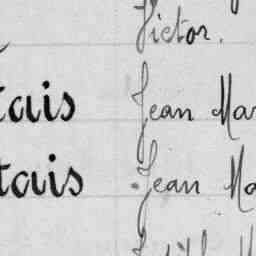 Victor.
tais Jean Mar
tais Jean Ma